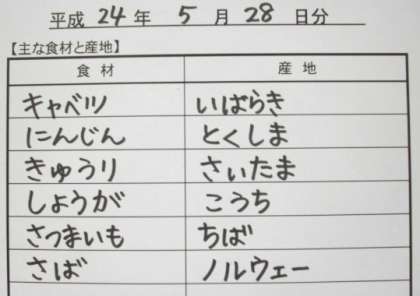 平成 24 年 5 月 28 日分
【主な食材と産地】
食材 産地
キャベツ いばらき
にんじん とくしま
きゅうり さいたま
しょうが こうち
さつまいも ちば
さば ノルウェー